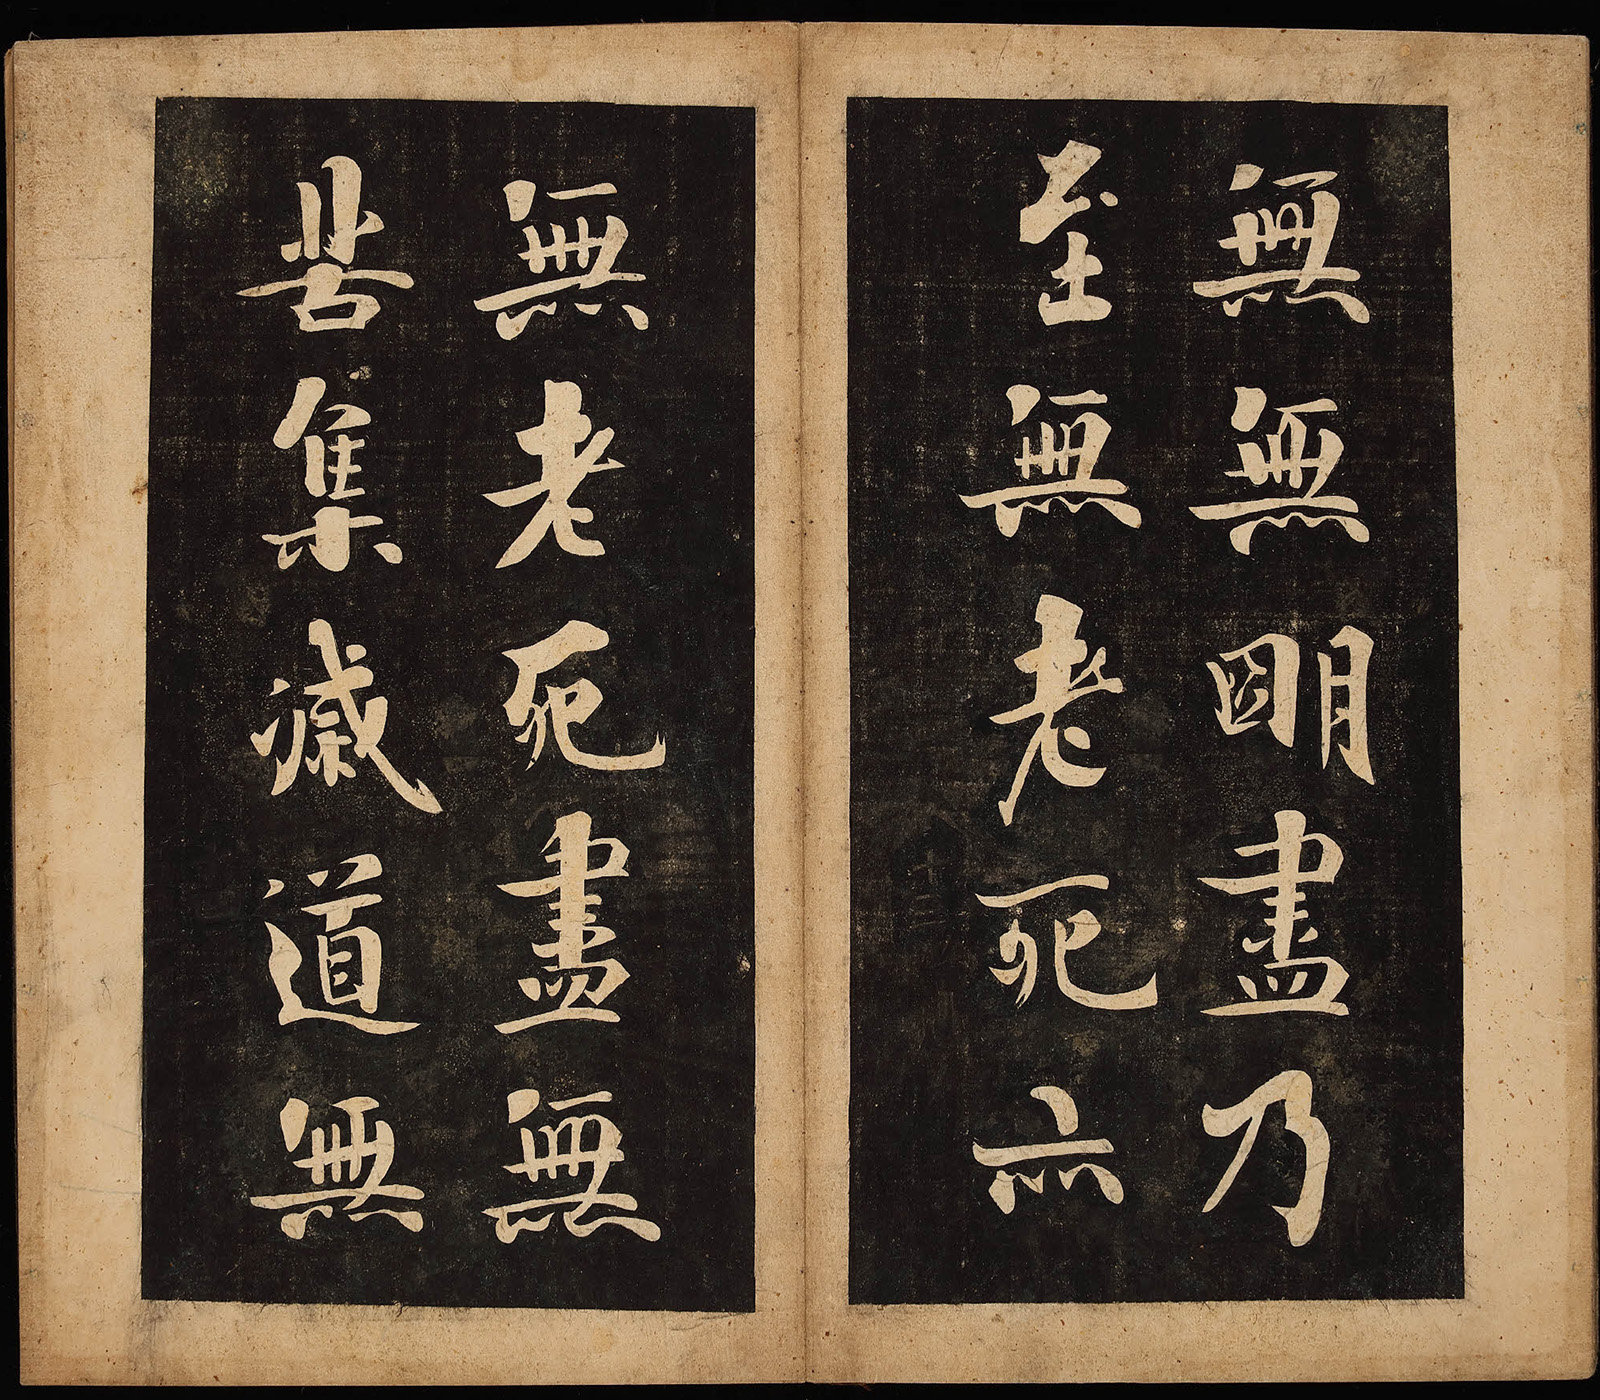 無無明盡乃
至無老死亦
無老死盡無
苦集滅道無
十三